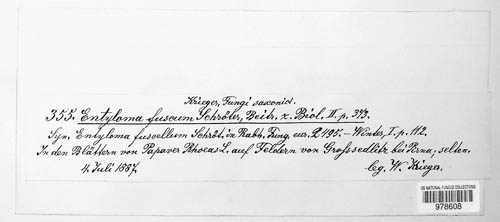 Krieger, Fungi saxonici.
355. Entyloma fuscum Schröter, Beitr. z. Biol. II. p. 373.
Syn. Entyloma fuscellum Schröt. in Rabh. Fung. eur. 2195. – Winter, I. p. 112.
In den Blättern von Papaver Rhoeas L. auf Feldern von Grosssedlitz bei Pirna, selten.
4. Juli 1887. leg. W. Krieger.
US NATIONAL FUNGUS COLLECTIONS
978608